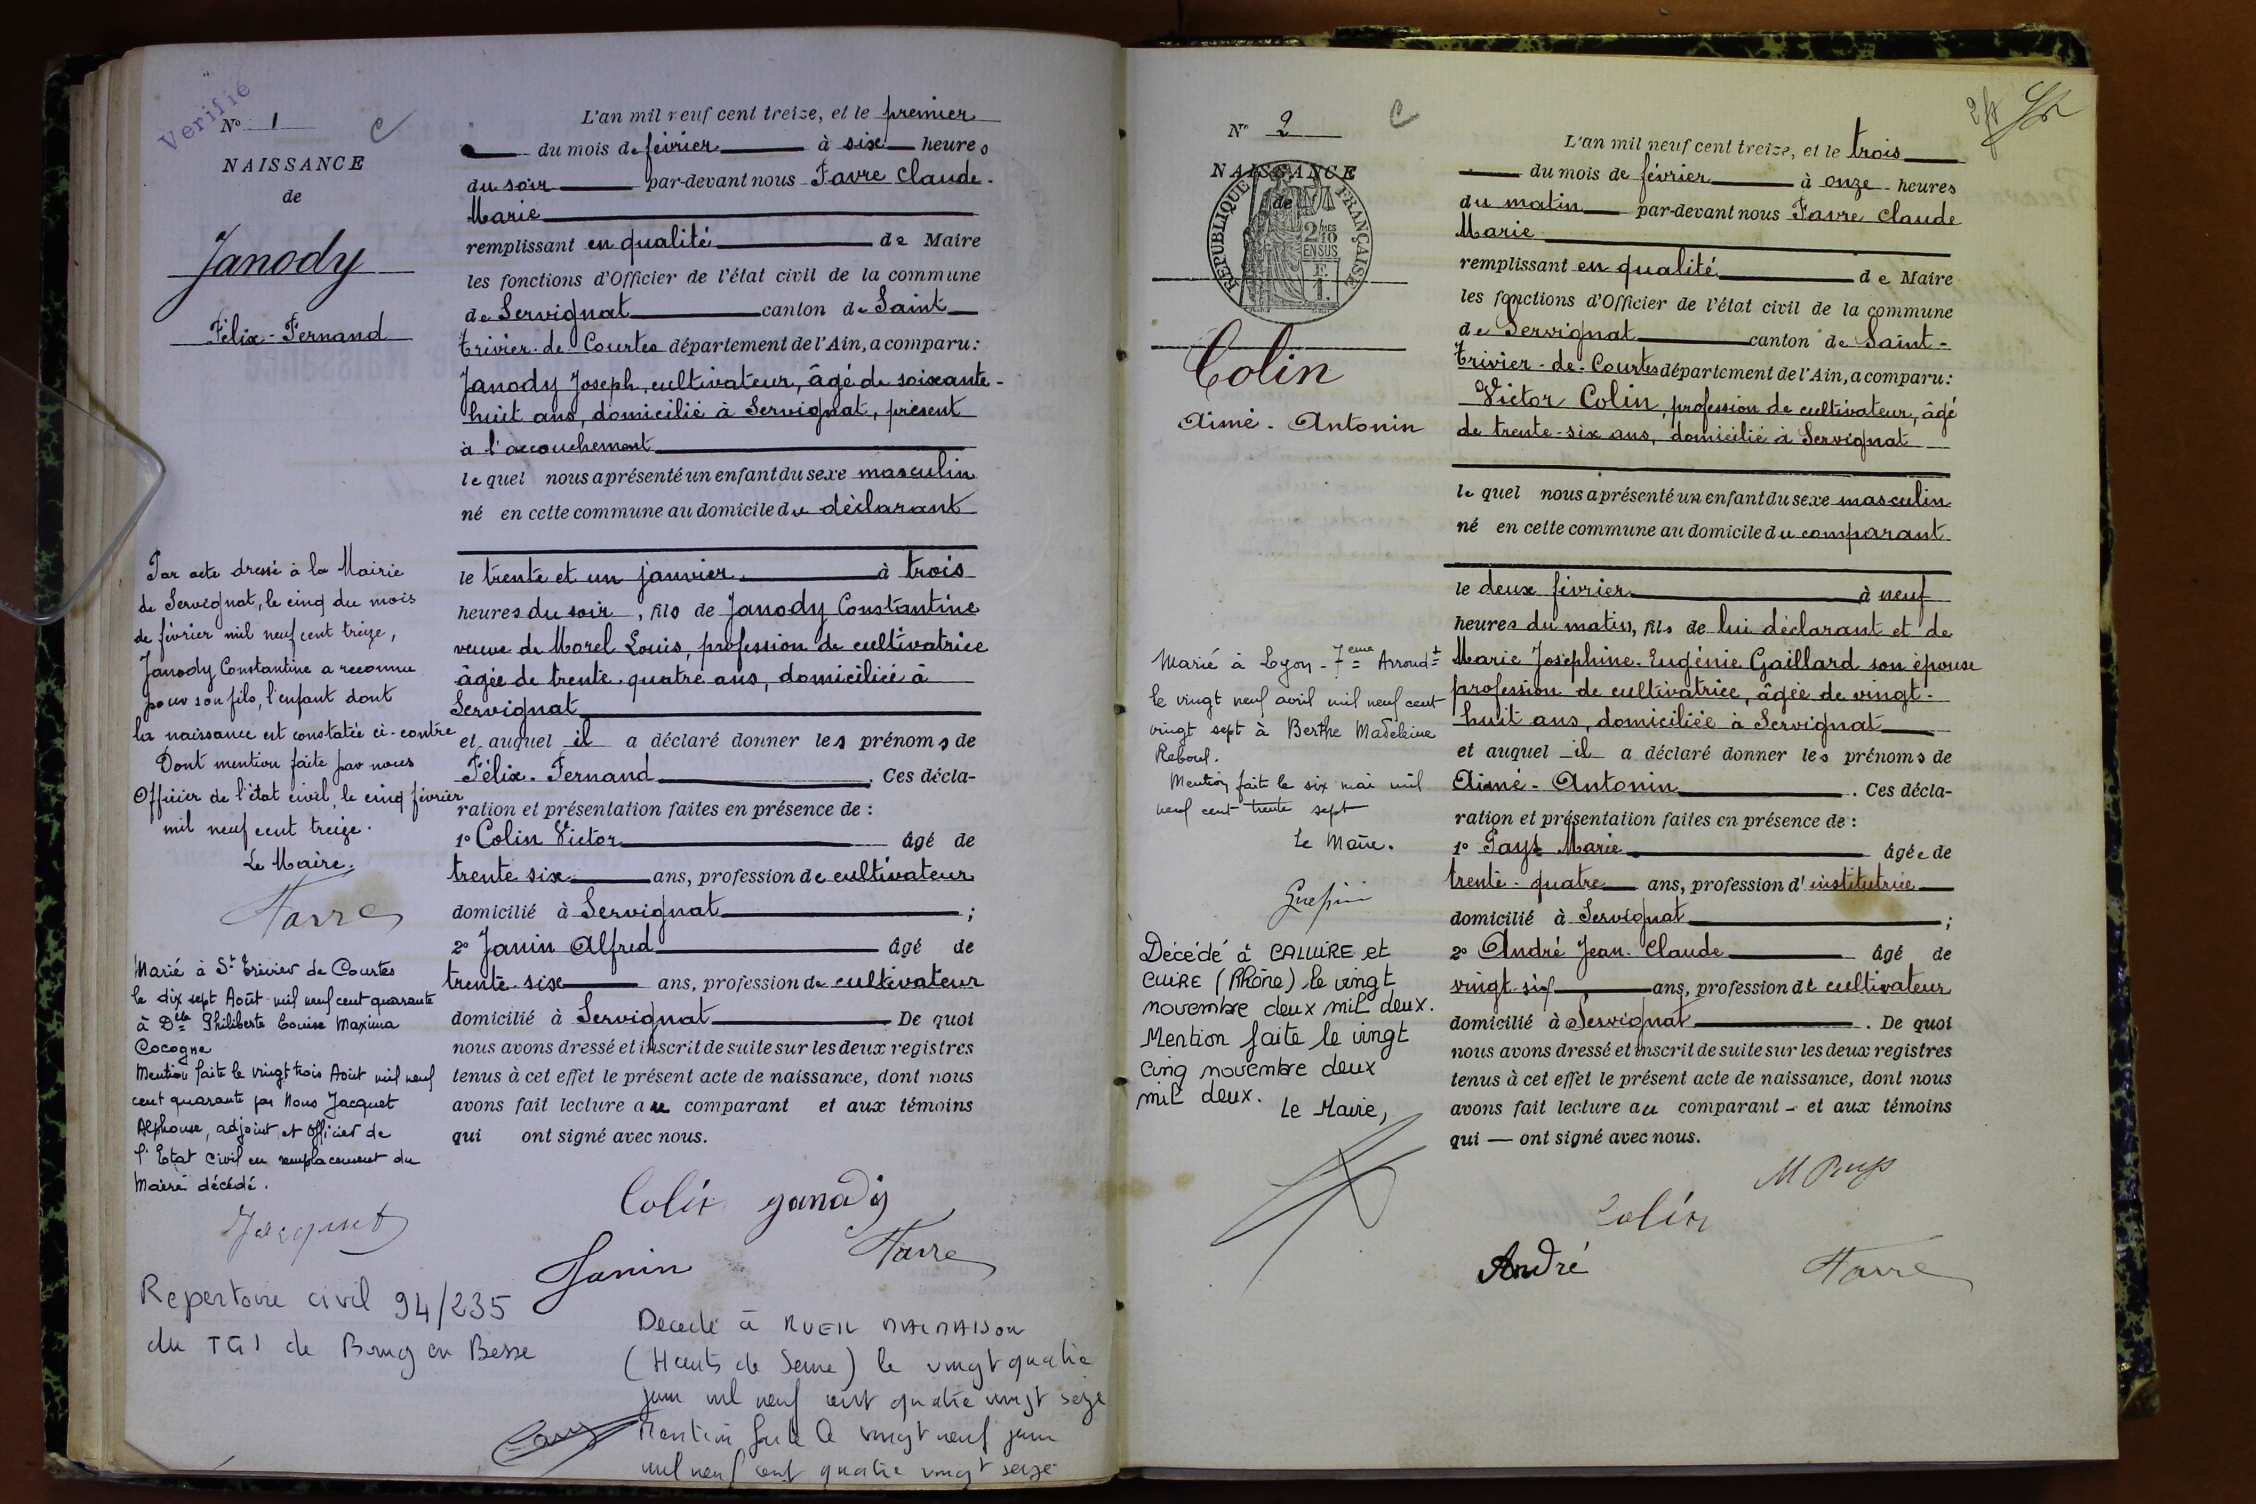 Verifié
No 1
NAISSANCE
de
Janody
Félix-Fernand
L'an mil neuf cent treize, et le premier
du mois de février à six heures
du soir par-devant nous Favre Claude-
Marie
remplissant en qualité de Maire
les fonctions d'Officier de l'état civil de la commune
de Servignat canton de Saint-
Trivier-de-Courtes département de l'Ain, a comparu:
Janody Joseph, cultivateur, âgé de soixante-
huit ans, domicilié à Servignat, présent
à l'accouchement
lequel nous a présenté un enfant du sexe masculin
né en cette commune au domicile du déclarant
le trente et un janvier à trois
heures du soir, fils de Janody Constantine
veuve de Morel Louis, profession de cultivatrice
âgée de trente-quatre ans, domiciliée à
Servignat
et auquel il a déclaré donner les prénoms de
Félix-Fernand. Ces décla-
ration et présentation faites en présence de:
1º Colin Victor âgé de
trente six ans, profession de cultivateur
domicilié à Servignat;
2º Janin Alfred âgé de
trente-six ans, profession de cultivateur
domicilié à Servignat De quoi
nous avons dressé et inscrit de suite sur les deux registres
tenus à cet effet le présent acte de naissance, dont nous
avons fait lecture au comparant et aux témoins
qui ont signé avec nous.
Colin Janody
Janin Favre
Par acte dressé à la Mairie
de Servignat, le cinq du mois
de février mil neuf cent treize,
Janody Constantine a reconnu
pour son fils, l'enfant dont
la naissance est constatée ci-contre
Dont mention faite par nous
Officier de l'état civil, le cinq février
mil neuf cent treize.
Le Maire,
Favre
Marié à St Trivier de Courtes
le dix sept Août mil neuf cent quarante
à Dlle Philiberte Louise Maxima
Cocogne
Mention faite le vingt trois Août mil neuf
cent quarante par Nous Jacquet
Alphonse, adjoint, et Officier de
l'Etat Civil en remplacement du
Maire décédé.
Jacquet
Repertoire civil 94/235
du TGI de Bourg en Bresse
Decede à RUEIL MALMAISON
(Hauts de Seine) le vingt quatre
juin mil neuf cent quatre vingt seize
Mention faite le vingt neuf juin
mil neuf cent quatre vingt seize
No 2
NAISSANCE
de
REPUBLIQUE FRANÇAISE
2/10
EN SUS
F.
1.
Colin
Aimé-Antonin
L'an mil neuf cent treize, et le trois
du mois de février à onze heures
du matin par-devant nous Favre Claude
Marie
remplissant en qualité de Maire
les fonctions d'Officier de l'état civil de la commune
de Servignat canton de Saint-
Trivier-de-Courtes département de l'Ain, a comparu:
Victor Colin, profession de cultivateur, âgé
de trente-six ans, domicilié à Servignat
lequel nous a présenté un enfant du sexe masculin
né en cette commune au domicile du comparant
le deux février à neuf
heures du matin, fils de lui déclarant et de
Marie Joséphine-Eugénie Gaillard son épouse
profession de cultivatrice, âgée de vingt-
huit ans, domiciliée à Servignat
et auquel il a déclaré donner les prénoms de
Aimé-Antonin. Ces décla-
ration et présentation faites en présence de:
1º Marie âgée de
trente-quatre ans, profession d'institutrice
domicilié à Servignat;
2º André Jean-Claude âgé de
vingt-six ans, profession de cultivateur
domicilié à Servignat. De quoi
nous avons dressé et inscrit de suite sur les deux registres
tenus à cet effet le présent acte de naissance, dont nous
avons fait lecture au comparant et aux témoins
qui ont signé avec nous.
Colin
André Favre
Marié à Lyon-7eme Arrondt
le vingt neuf avril mil neuf cent
vingt sept à Berthe Madeleine
Reboul.
Mention faite le six mai mil
neuf cent trente sept
Le Maire.
Décédé à CALUIRE et
CUIRE (Rhône) le vingt
novembre deux mil deux.
Mention faite le vingt
cinq novembre deux
mil deux.
Le Maire,